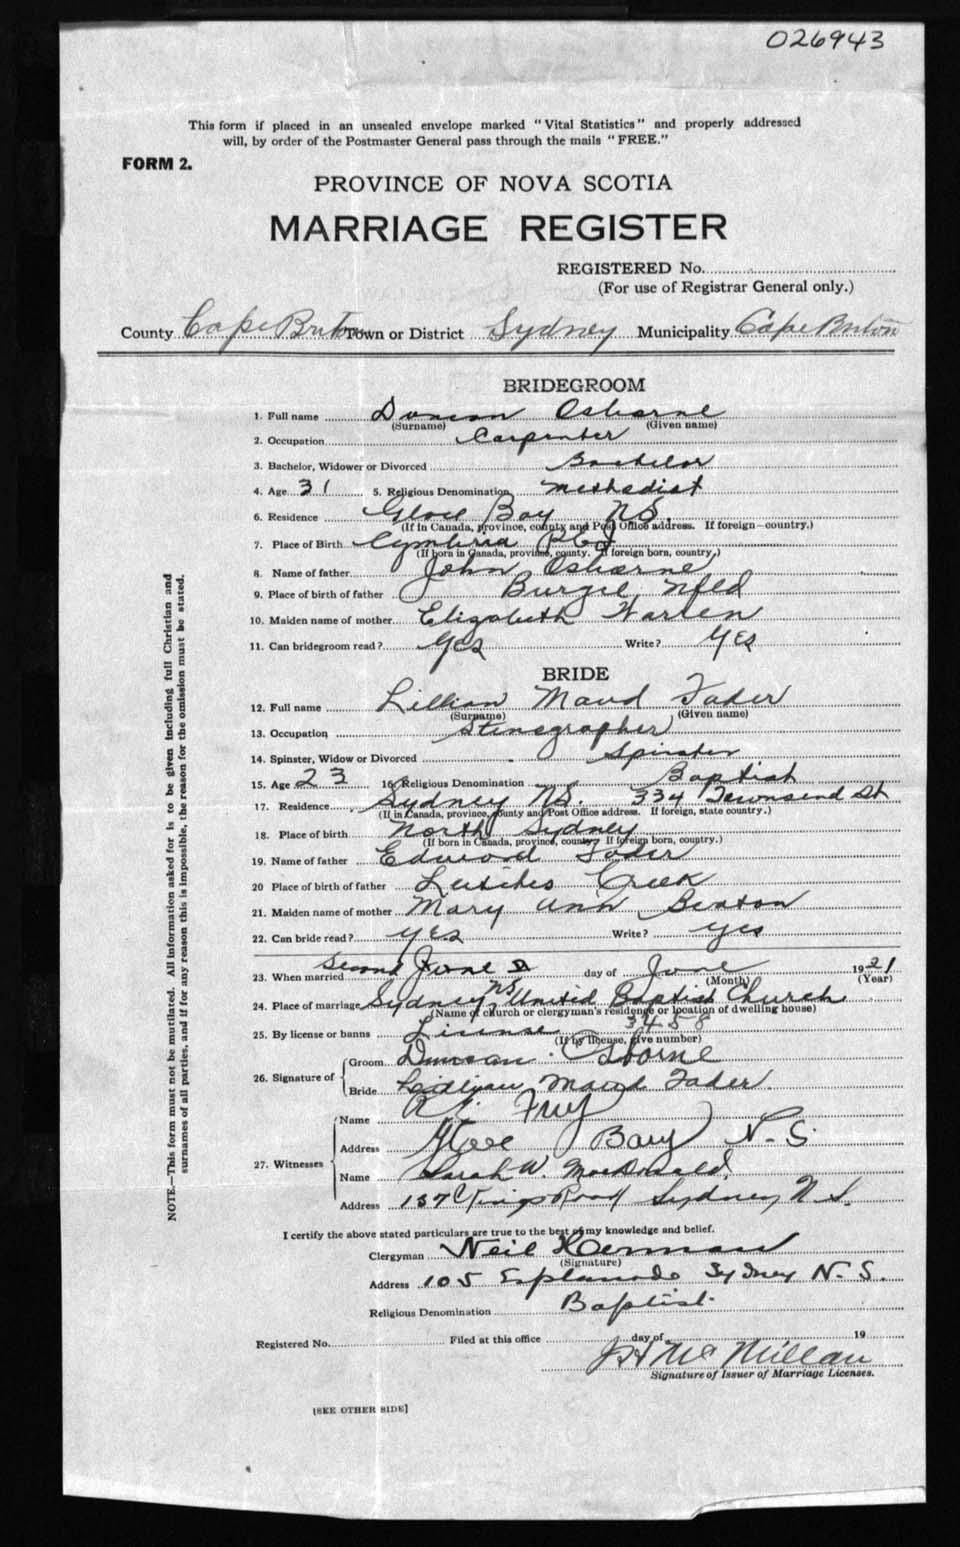 026943
This form if placed in an unsealed envelope marked "Vital Statistics" and properly addressed
will, by order of the Postmaster General pass through the mails "FREE."
FORM 2.
PROVINCE OF NOVA SCOTIA
MARRIAGE REGISTER
REGISTERED No.
(For use of Registrar General only.)
County Cape Breton Town or District Sydney Municipality Cape Breton
BRIDEGROOM
1. Full name Duncan Osborne
(Surname) (Given name)
2. Occupation Carpenter
3. Bachelor, Widower or Divorced Bachelor
4. Age 31 5. Religious Denomination Methodist
6. Residence Glace Bay NS
(If in Canada, province, county and Post Office address. If foreign-country.)
7. Place of Birth Cymbria
(If born in Canada, province, county. If foreign born, country.)
8. Name of father John Osborne
9. Place of birth of father Burgeo, Nfld
10. Maiden name of mother Elizabeth Warren
11. Can bridegroom read? Yes Write? Yes
BRIDE
12. Full name Lillian Maud Fader
(Surname) (Given name)
13. Occupation Stenographer
14. Spinster, Widow or Divorced Spinster
15. Age 23 16 Religious Denomination Baptist
17. Residence Sydney NS. 334 Townsend St
(If in Canada, province, county and Post Office address. If foreign, state country.)
18. Place of birth North Sydney
(If born in Canada, province, county. If foreign born, country.)
19. Name of father Edward Fader
20 Place of birth of father Leitches Creek
21. Maiden name of mother Mary Ann
22. Can bride read? yes Write? yes
23. When married Second June day of June 1921
(Month) (Year)
24. Place of marriage Sydney NS, United Baptist Church
(Name of church or clergyman's residence or location of dwelling house)
25. By license or banns License 3458
(If by license, give number)
26. Signature of Groom Duncan Osborne
Bride Lillian Maud Fader
27. Witnesses Name
Address Glace Bay N.S.
Name Sarah W. MacDonald,
Address 137 Kings Road Sydney, N.S.
I certify the above stated particulars are true to the best of my knowledge and belief.
Clergyman Neil Herman
(Signature)
Address 105 Esplanade Sydney N.S.
Religious Denomination Baptist.
Registered No. Filed at this office day of 19
JH McMillan
Signature of Issuer of Marriage Licenses.
[SEE OTHER SIDE]
NOTE.—This form must not be mutilated. All information asked for is to be given including full Christian and
surnames of all parties, and if for any reason this is impossible, the reason for the omission must be stated.